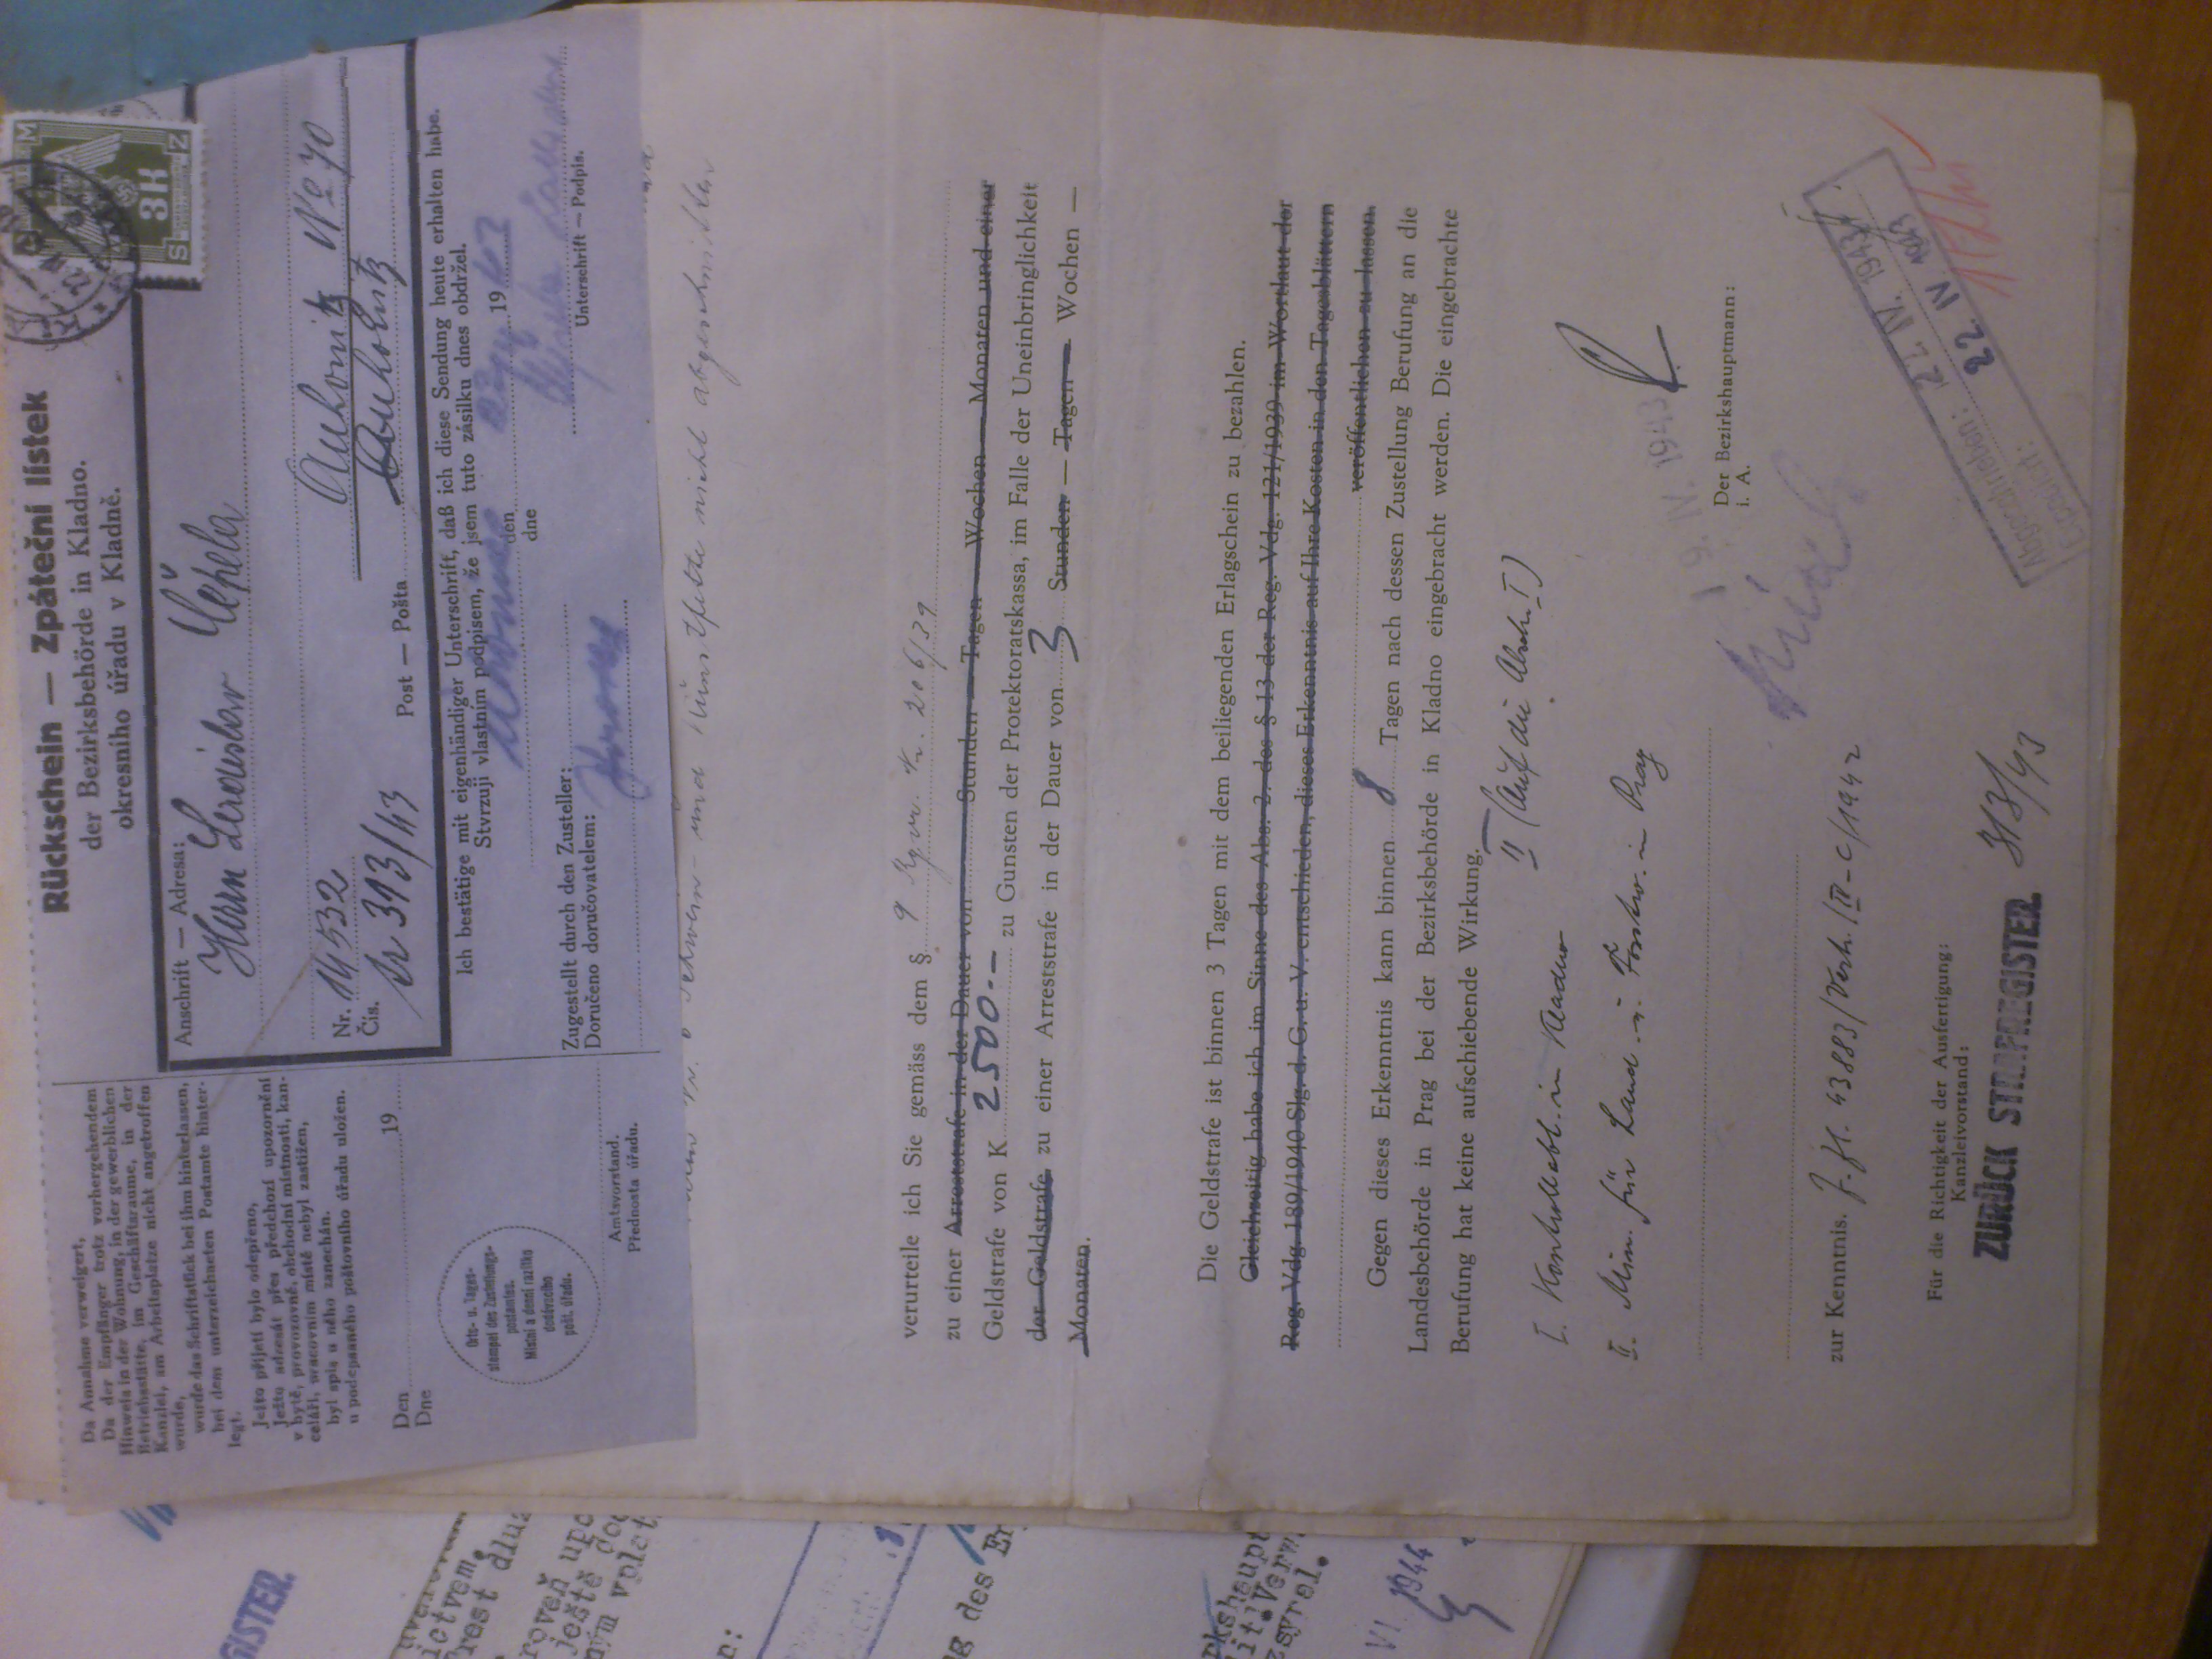 Rückschein — Zpáteční lístek
der Bezirksbehörde in Kladno.
okresního úřadu v Kladně.
M
3K
S Z
Da Annahme verweigert,
Da der Empfänger trotz vorhergehendem
Hinweis in der Wohnung, in der gewerblichen
Betriebsstätte, im Geschäftsraume, in der
Kanzlei, am Arbeitsplatze nicht angetroffen
wurde,
wurde das Schriftstück bei ihm hinterlassen,
bei dem unterzeichneten Postamte hinter-
legt.
Ježto přijetí bylo odepřeno,
Ježto adresát přes předchozí upozornění
v bytě, provozovně, obchodní místnosti, kan-
celáři, pracovním místě nebyl zastižen,
byl spis u něho zanechán.
u podepsaného poštovního úřadu uložen.
Den 19
Dne
Orts- u. Tages-
stempel des Zustellungs-
postamtes.
Místní a denní razítko
dodávacího
pošt. úřadu.
Amtsvorstand.
Přednosta úřadu.
Anschrift — Adresa:
Herrn Ladislav Čepela
Nr. 14532
Čís.
tr 313/43
Auhonitz No 70
Post — Pošta Auhonitz
Ich bestätige mit eigenhändiger Unterschrift, daß ich diese Sendung heute erhalten habe.
Stvrzuji vlastním podpisem, že jsem tuto zásilku dnes obdržel.
den 19 43
dne
Zugestellt durch den Zusteller:
Doručeno doručovatelem:
Unterschrift — Podpis.
Nr. 6 Schwein- und Kunstfette nicht abgeschnitten
verurteile ich Sie gemäss dem § 9 Rgvr. Nr. 206/39
zu einer Arreststrafe in der Dauer von Stunden — Tagen — Wochen — Monaten und einer
Geldstrafe von K 2500.- zu Gunsten der Protektoratskassa, im Falle der Uneinbringlichkeit
der Geldstrafe zu einer Arreststrafe in der Dauer von 3 Stunden — Tagen — Wochen —
Monaten.
Die Geldstrafe ist binnen 3 Tagen mit dem beiliegenden Erlagschein zu bezahlen.
Gleichzeitig habe ich im Sinne des Abs. 2. des § 13 der Reg. Vdg. 121/1939 im Wortlaut der
Reg. Vdg. 189/1940 Slg. d. G. u. V. entschieden, dieses Erkenntnis auf Ihre Kosten in den Tagesblättern
veröffentlichen zu lassen.
Gegen dieses Erkenntnis kann binnen 8 Tagen nach dessen Zustellung Berufung an die
Landesbehörde in Prag bei der Bezirksbehörde in Kladno eingebracht werden. Die eingebrachte
Berufung hat keine aufschiebende Wirkung.
II (Auf die Absch. I)
I. Kontrollabt. in Kladno
II. Min. für Land. u. Forstw. in Prag
19. IV. 1943
Der Bezirkshauptmann:
i. A.
zur Kenntnis. z. Zl. 43883/Verh./IV-C/1942
Für die Richtigkeit der Ausfertigung:
Kanzleivorstand:
ZURÜCK STRAFREGISTER. 313/43
Abgeschrieben: 22. IV. 1943
Expediert: 22. IV. 1943
GISTER.
ictvem.
úroveň upo
ještě do
g des
VI. 1944